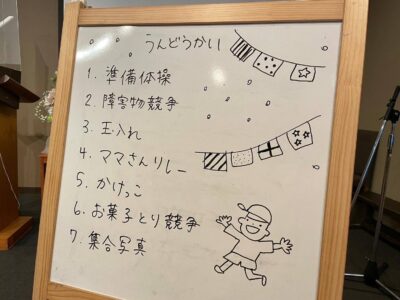 うんどうかい
1. 準備体操
2. 障害物競争
3. 玉入れ
4. ママさんリレー
5. かけっこ
6. お菓子とり競争
7. 集合写真